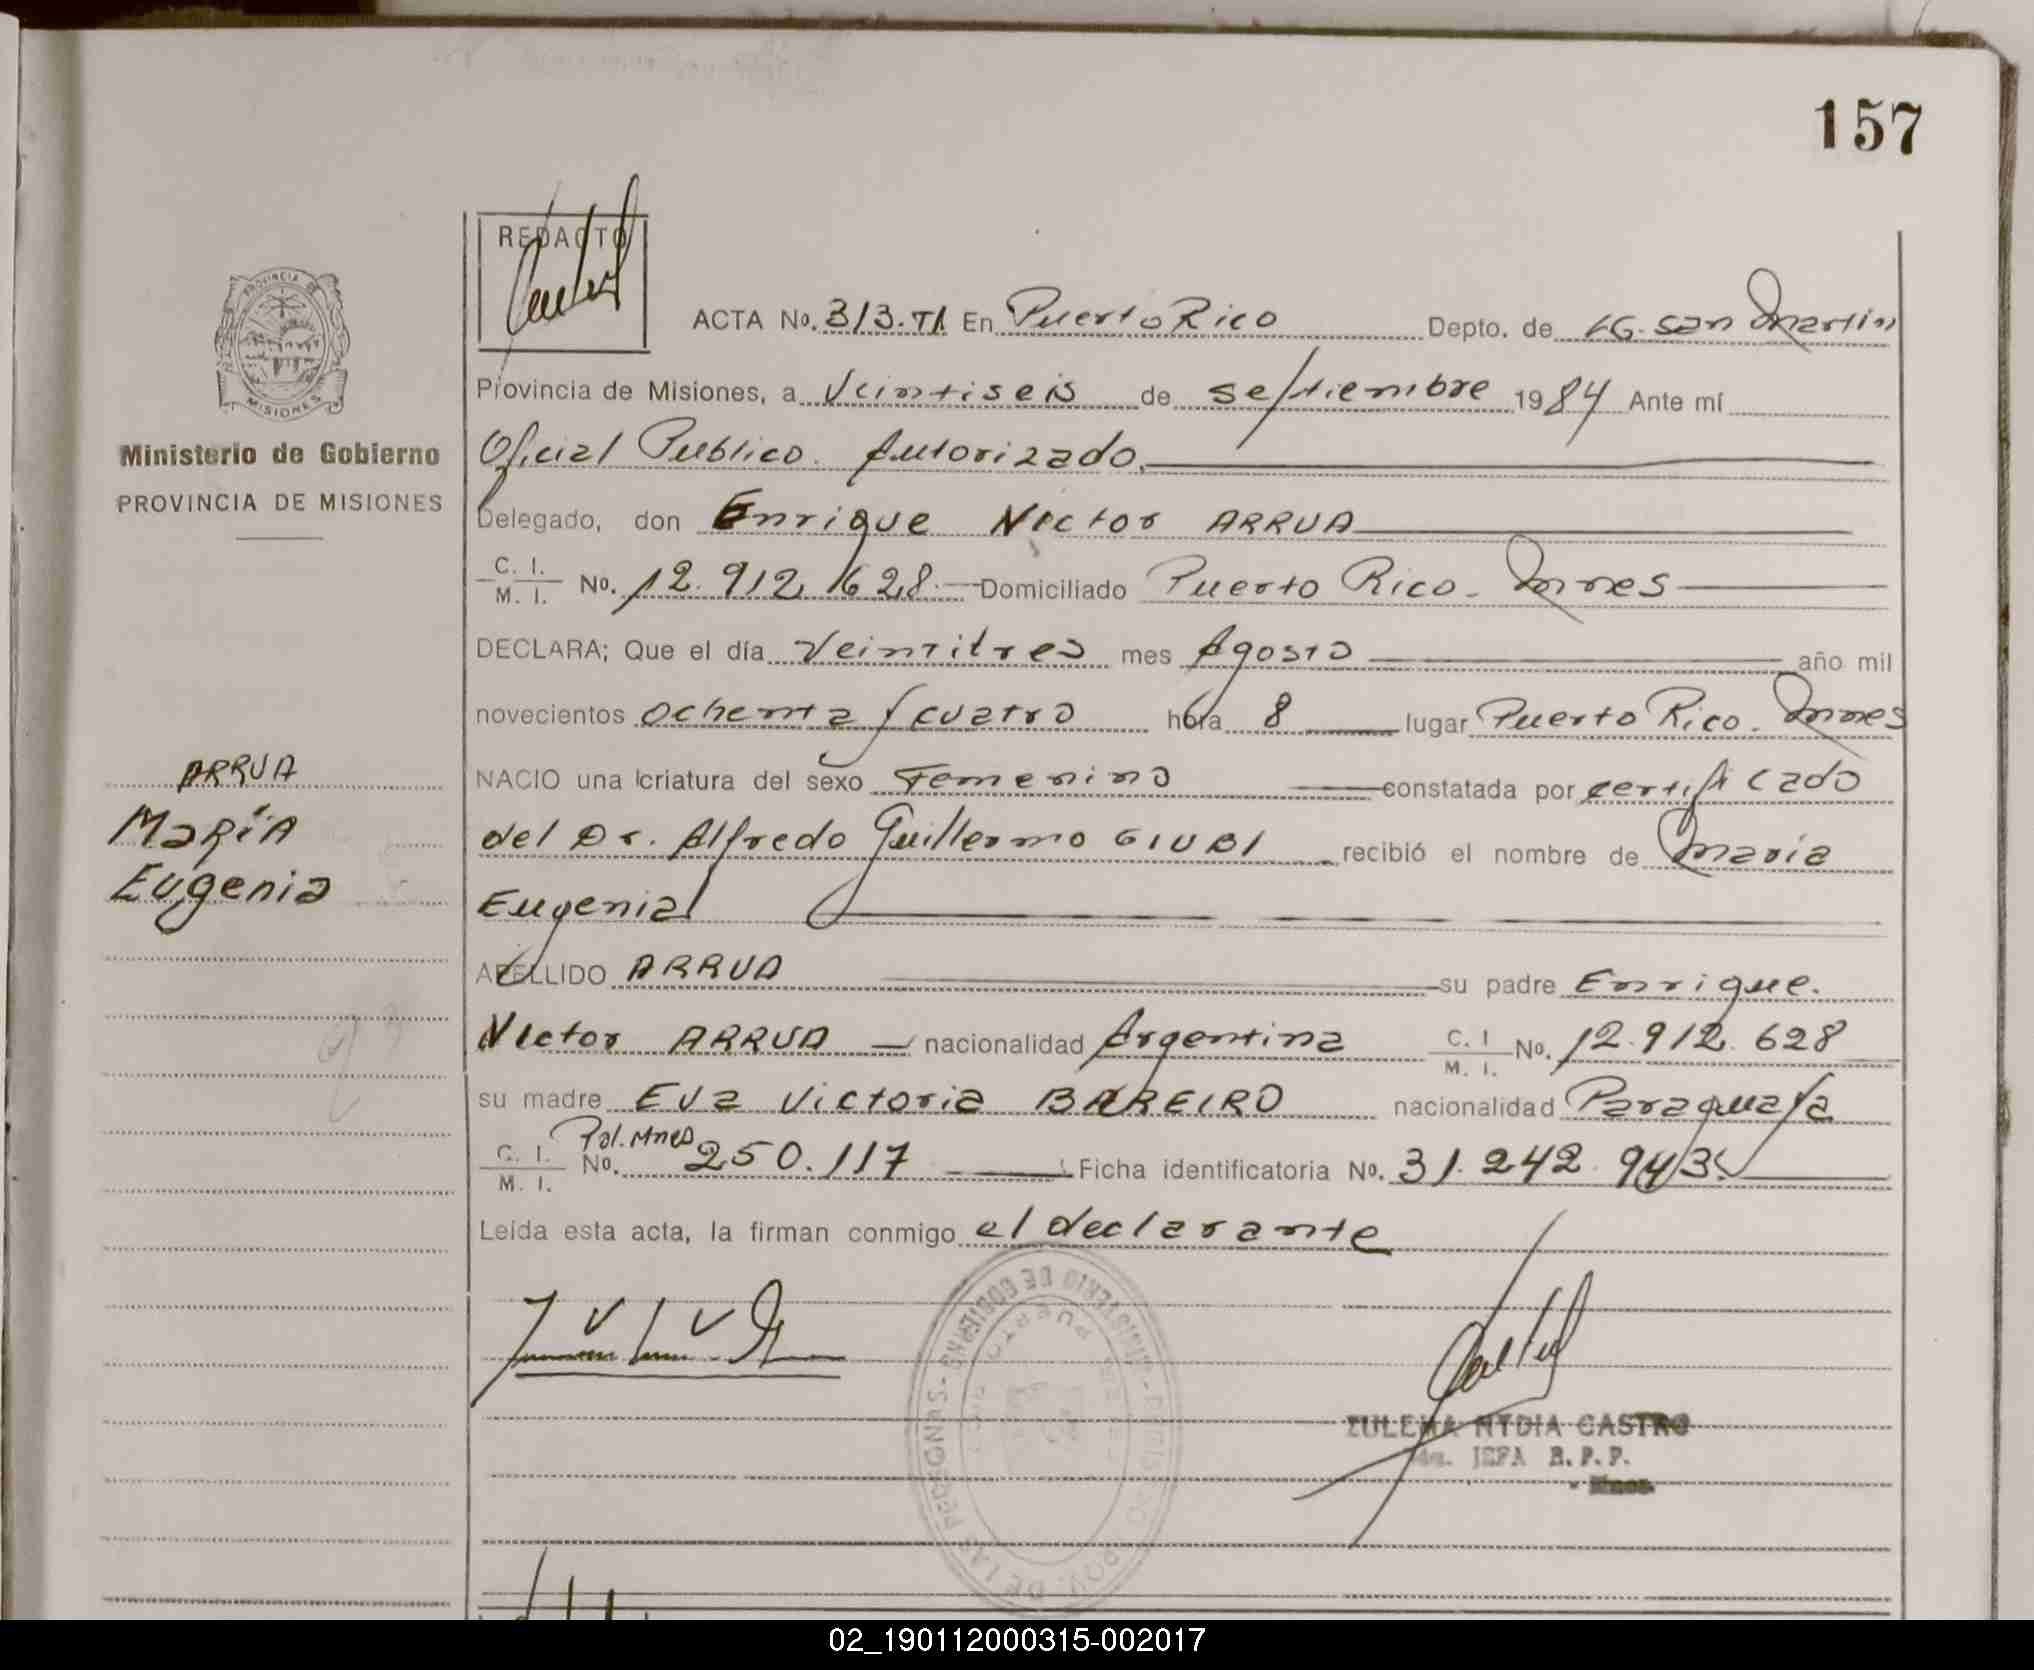 157
REDACTO
PROVINCIA DE
MISIONES
Ministerio de Gobierno
PROVINCIA DE MISIONES
ACTA No. 313. T1 En Puerto Rico Depto. de LG. San Martin
Provincia de Misiones, a Veintiseis de septiembre 1984 Ante mí
Oficial Publico. Autorizado.
Delegado, don Enrique Victor ARRUA
C. I. M. I. No. 12.912.628.— Domiciliado Puerto Rico. Mnes
DECLARA; Que el día Veintitres mes Agosto año mil
novecientos ochenta y cuatro hora 8 lugar Puerto Rico. Mnes
NACIO una criatura del sexo Femenino constatada por certificado
del Dr. Alfredo Guillermo GIUBI recibió el nombre de Maria
Eugenia
APELLIDO ARRUA su padre Enrique.
Victor ARRUA — nacionalidad Argentina C. I M. I. No. 12.912.628
su madre Eva Victoria BAREIRO nacionalidad Paraguaya
C. I. M. I. No. Pol. Mnes 250.117 Ficha identificatoria No. 31.242.943.
Leída esta acta, la firman conmigo el declarante
ARRUA
María
Eugenia
MINISTERIO DE GOBIERNO
DE LAS PERSONAS
PUERTO
ZULEMA NYDIA CASTRO
JEFA R. P. P.
Mnes.
02_190112000315-002017